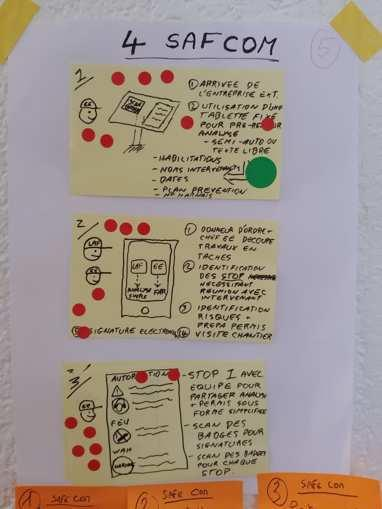 4 SAFCOM
5
1/
EE
① ARRIVÉE DE
L'ENTREPRISE EXT.
② UTILISATION D'UNE
TABLETTE FIXE
POUR
ANALYSE
- SEMI-AUTO OU
TEXTE LIBRE
- HABILITATIONS
- NOMS INTERVENANTS
- DATES
- PLAN PREVENTION
2/
EE
① DONNEUR D'ORDRE +
CHEF EE DECOUPE
TRAVAUX EN
TACHES
② IDENTIFICATION
DES STOP
NECESSITANT
REUNION AVEC
INTERVENANT
③ IDENTIFICATION
RISQUES +
PREPA PERMIS
④ VISITE CHANTIER
EE
ANALYSE
SIGNATURE
3/
EE
FEU
- STOP 1 AVEC
EQUIPE POUR
PARTAGER ANALYSE
+ PERMIS SOUS
FORME SIMPLIFIEE
- SCAN DES
BADGES POUR
SIGNATURES
- SCAN DES BADGES
POUR CHAQUE
STOP.
1 SAFE CON
2 SAFE CON
3 SAFE CON